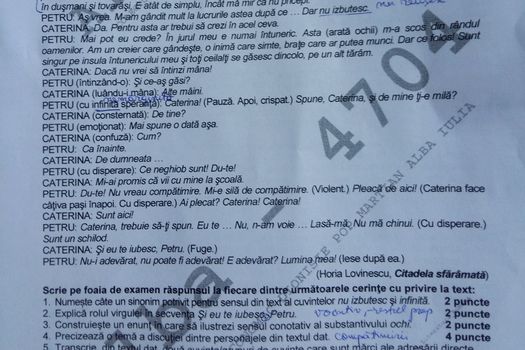 în dușmani și tovarăși. E atât de simplu, încât mă mir că nu pricepi.
PETRU: Aș vrea. M-am gândit mult la lucrurile astea după ce … Dar nu izbutesc.
CATERINA: Da. Pentru asta ar trebui să crezi în acel ceva.
PETRU: Mai pot eu crede? În jurul meu e numai întuneric. Asta (arată ochii) m-a scos din rândul
oamenilor. Am un creier care gândește, o inimă care simte, brațe care ar putea munci. Dar ce folos! Sunt
singur pe insula întunericului meu și toți ceilalți se găsesc dincolo, pe un alt țărâm.
CATERINA: Dacă nu vrei să întinzi mâna!
PETRU (întinzând-o): Și ce-aș găsi?
CATERINA (luându-i mâna): Alte mâini.
PETRU (cu infinită speranță): Caterina! (Pauză. Apoi, crispat.) Spune, Caterina, și de mine ți-e milă?
CATERINA (consternată): De tine?
PETRU (emoționat): Mai spune o dată așa.
CATERINA (confuză): Cum?
PETRU: Ca înainte.
CATERINA: De dumneata …
PETRU (cu disperare): Ce neghiob sunt! Du-te!
CATERINA: Mi-ai promis că vii cu mine la școală.
PETRU: Du-te! Nu vreau compătimire. Mi-e silă de compătimire. (Violent.) Pleacă de aici! (Caterina face
câțiva pași înapoi. Cu disperare.) Ai plecat? Caterina! Caterina!
CATERINA: Sunt aici!
PETRU: Caterina, trebuie să-ți spun. Eu te … Nu, n-am voie … Lasă-mă. Nu mă chinui. (Cu disperare.)
Sunt un schilod.
CATERINA: Și eu te iubesc, Petru. (Fuge.)
PETRU: Nu-i adevărat, nu poate fi adevărat! E adevărat? Lumina mea! (Iese după ea.)
(Horia Lovinescu, Citadela sfărâmată)
Scrie pe foaia de examen răspunsul la fiecare dintre următoarele cerințe cu privire la text:
1. Numește câte un sinonim potrivit pentru sensul din text al cuvintelor nu izbutesc și infinită. 2 puncte
2. Explică rolul virgulei în secvența: Și eu te iubesc, Petru. 2 puncte
3. Construiește un enunț în care să ilustrezi sensul conotativ al substantivului ochi. 2 puncte
4. Precizează o temă a discuției dintre personajele din textul dat. compătimirii 4 puncte
4704
ALBA IULIA